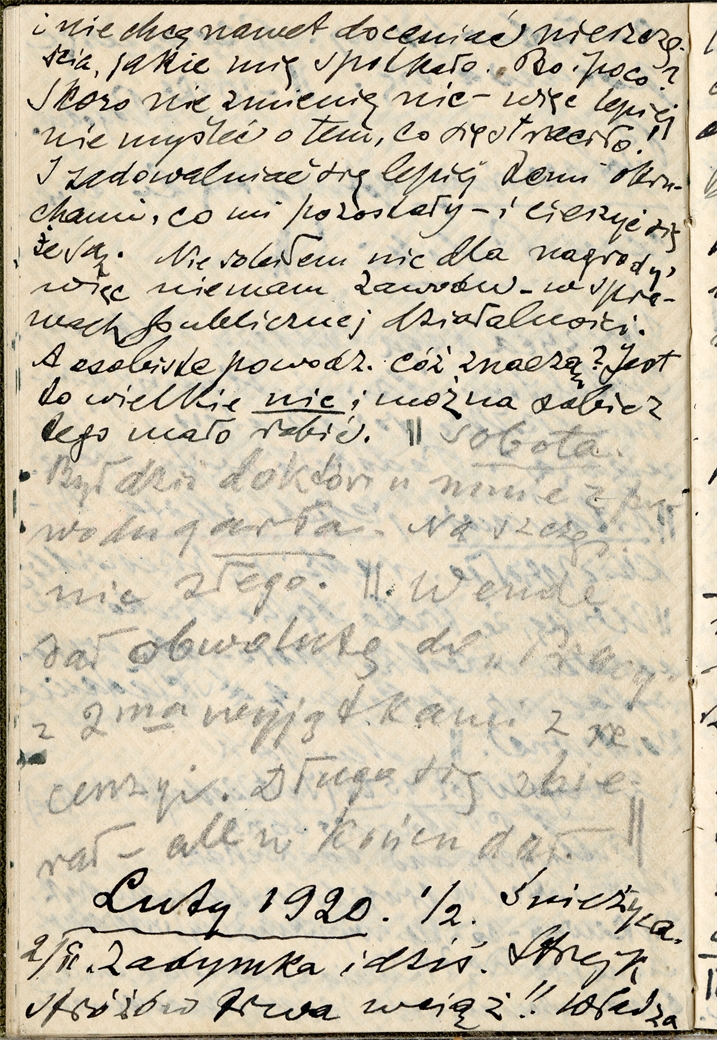 i nie chcę nawet doceniać nieszczę-
ścia, jakie mię spotkało. Bo i poco?
Skoro nie zmienię nic – więc lepiej
nie myśleć o tem, co się straciło!!
I zadowalniać się lepiej temi okru-
chami, co mi pozostały – i cieszyć się
że są. Nie robiłem nic dla nagrody,
więc niemam zawodów – w spra-
wach publicznej działalności.
A osobiste powodz. cóż znaczą? Jest
to wielkie nic i można sobie z
tego mało robić. || sobota.
Był dziś doktór u mnie z po-
wodu gardła. Na szczę.
nic złego. ||. Wende
dał obwolutę do "Pracy"
z 2ma wyjątkami z re
cenzyi. Długo się zbie-
rał – ale w końcu dał. ||
Luty 1920. 1/2. Śnieżyca.
2/II. Zadymka i dziś. Strejk
stróżów trwa wciąż!! Władza